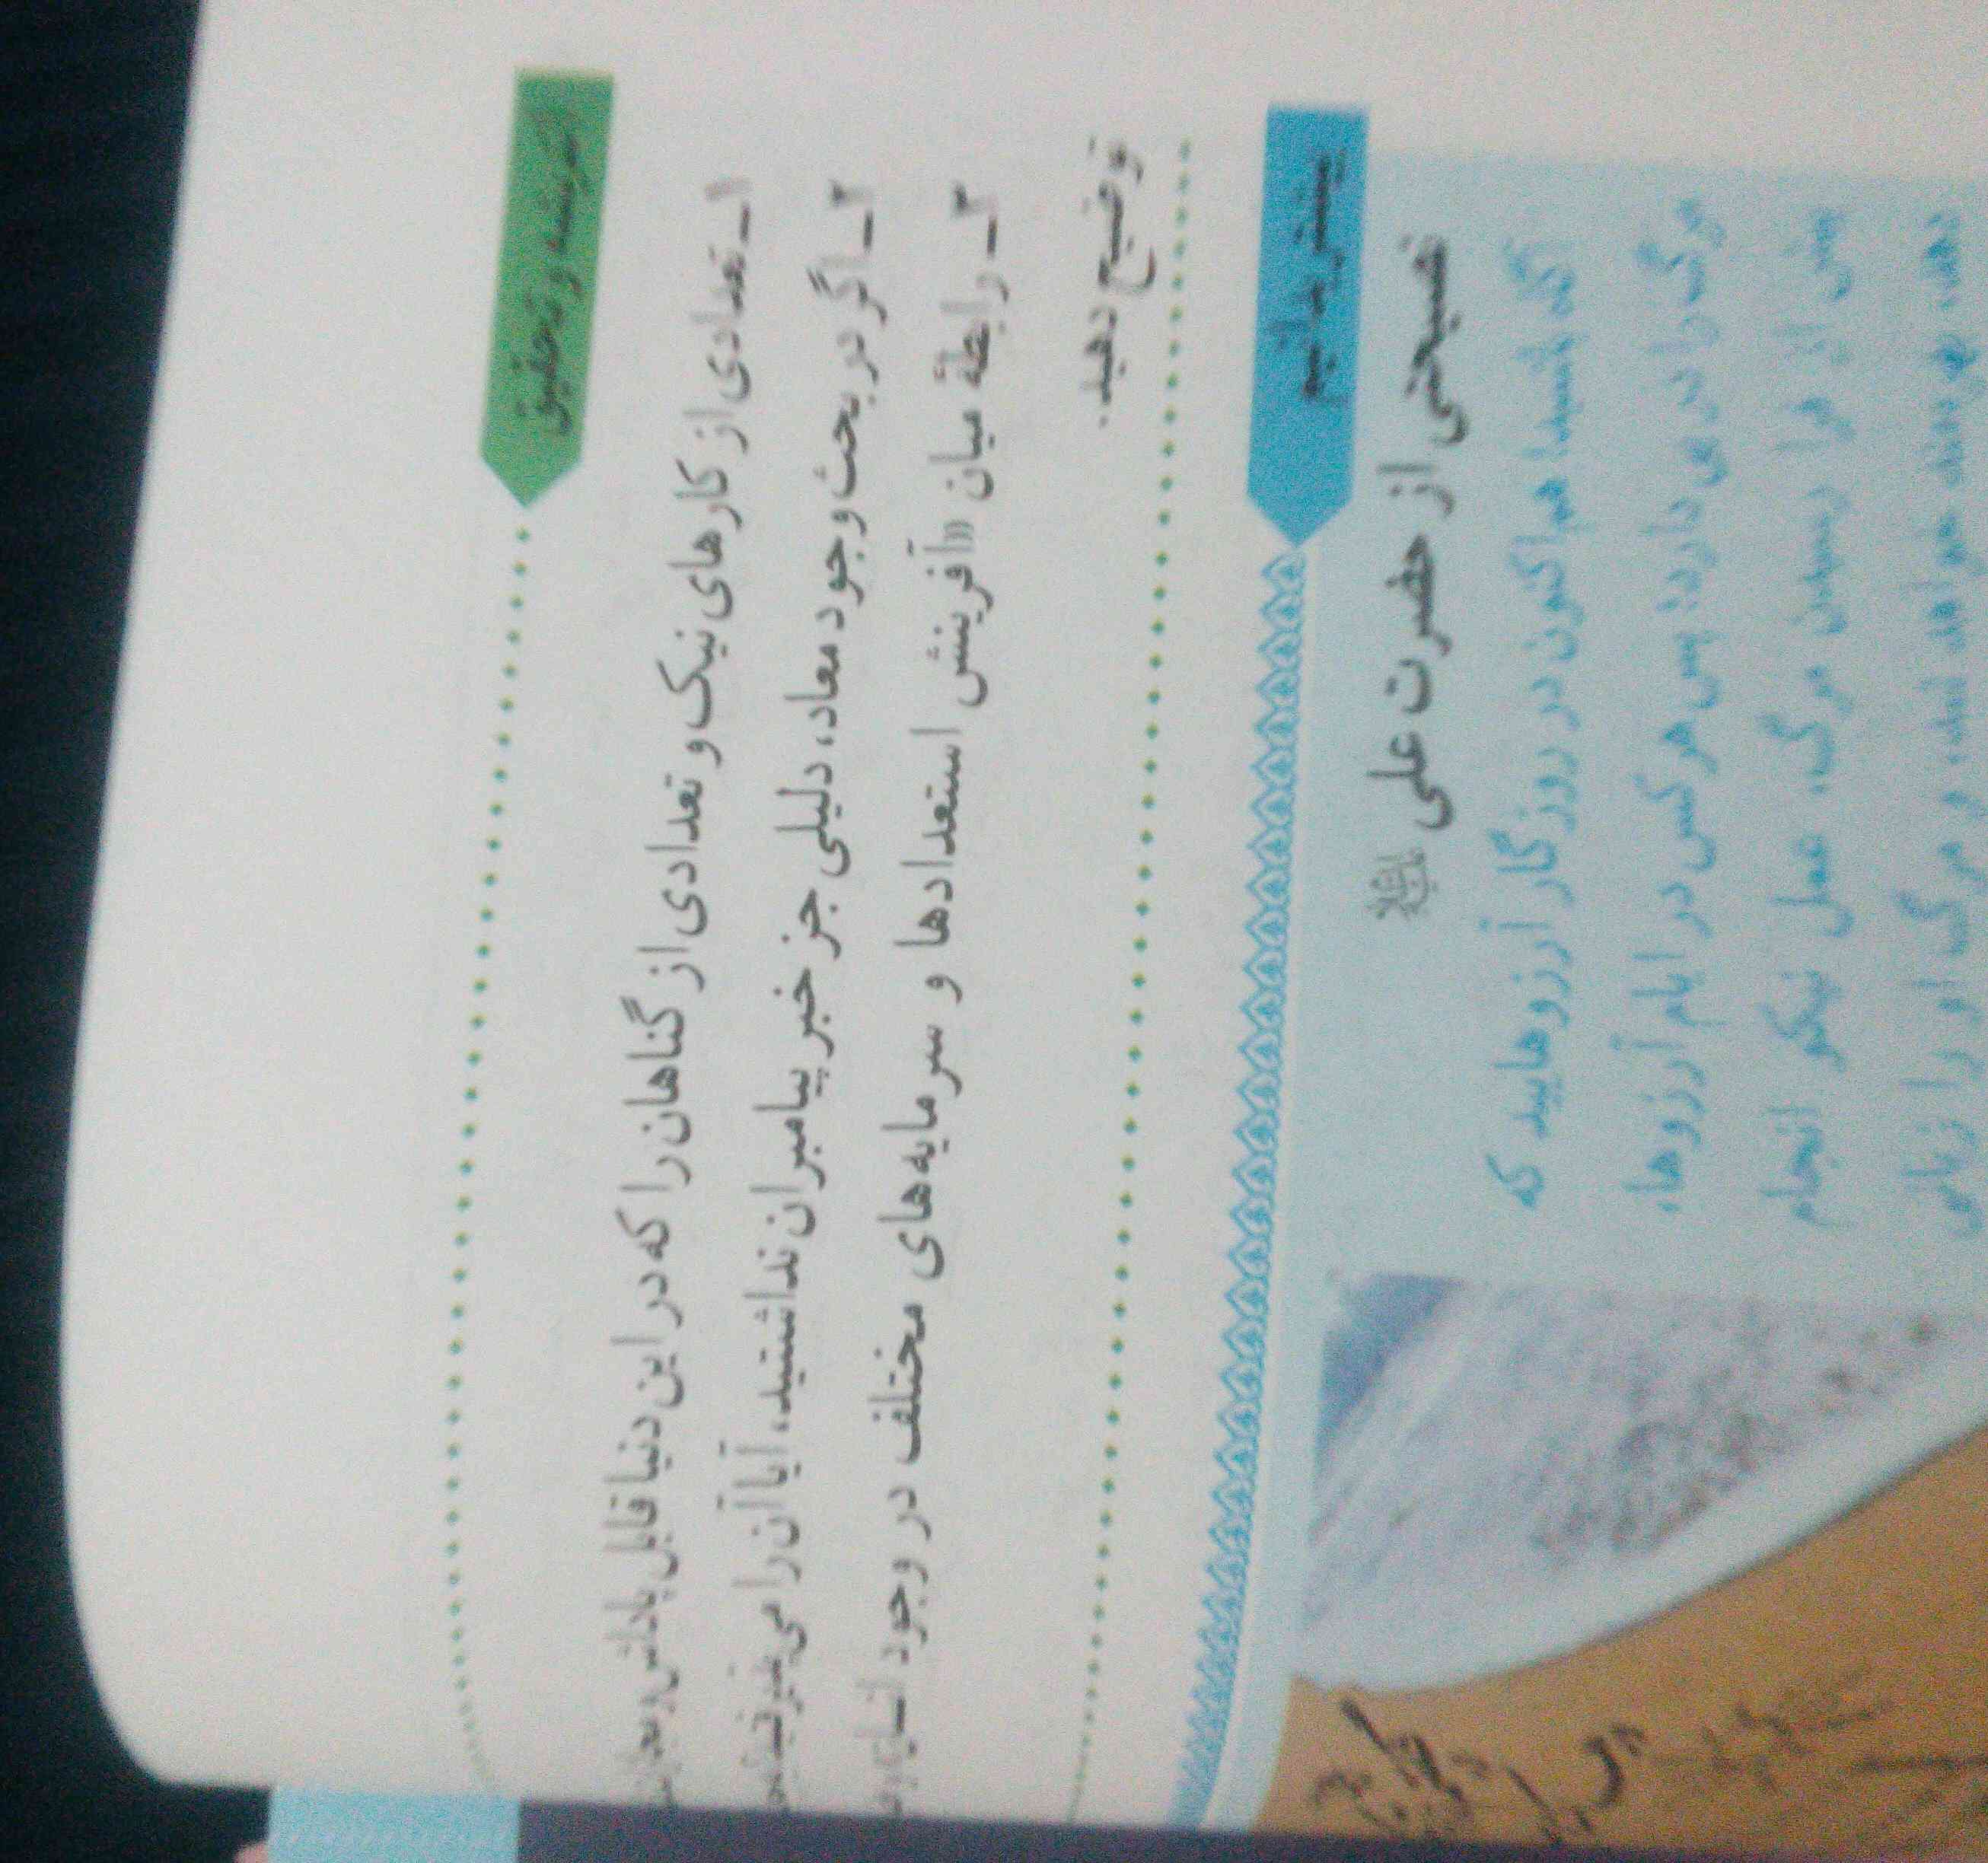 اندیشه و تحقیق
۱ـ تعدادی از کارهای نیک و تعدادی از گناهان را که در این دنیا قابل پاداش و
۲ـ اگر در بحث وجود معاد، دلیلی جز خبر پیامبران نداشتید، آیا آن را می‌پذیرفتید
۳ـ رابطهٔ میان «آفرینش استعدادها و سرمایه‌های مختلف در وجود
توضیح دهید.
بیشتر بدانیم
نصیحتی از حضرت علی
آگاه باشید! هم‌اکنون در روزگار آرزوهایید که
مرگ را در پی دارد؛ پس هر کس در ایام آرزوها،
پیش از فرا رسیدن مرگ، عمل نیکو انجام
دهد، بهره‌مند خواهد شد، و مرگ او را زیانی